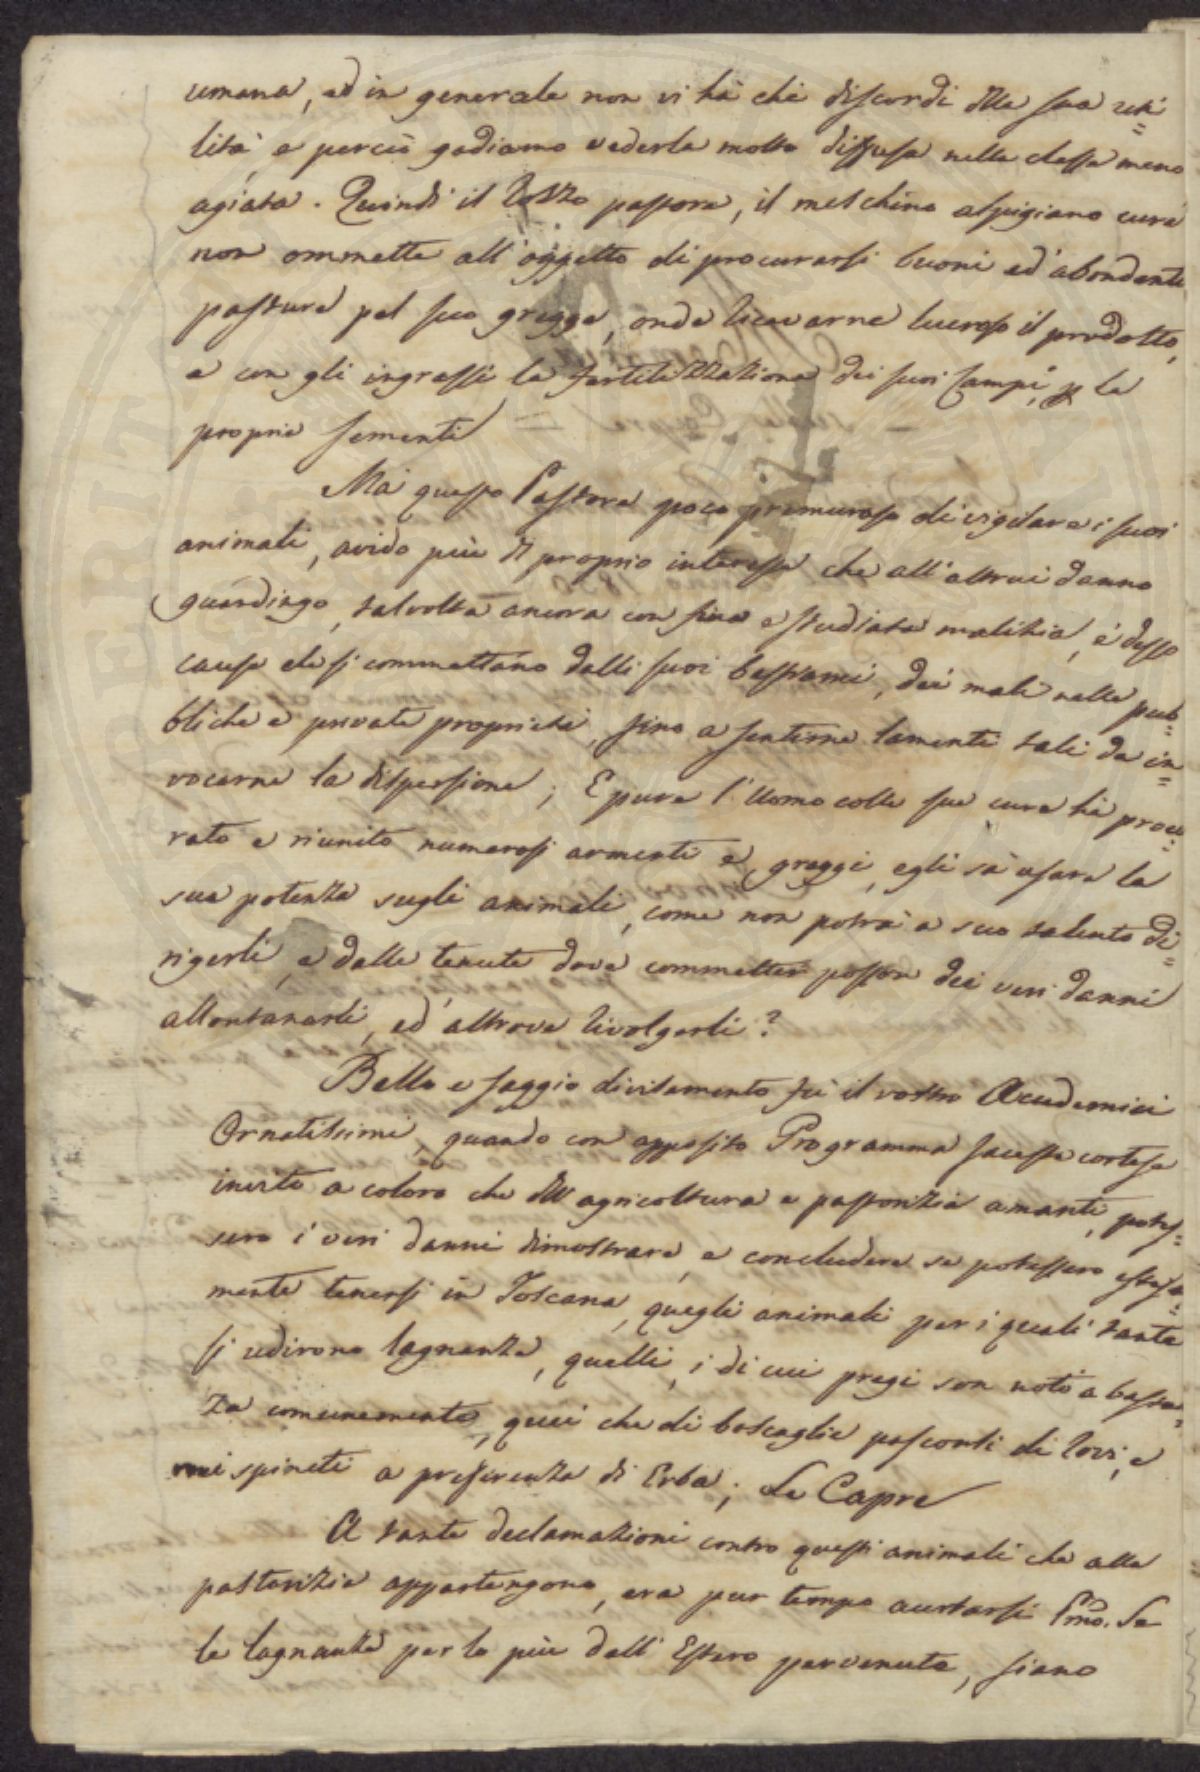 umana, ed in generale non vi hà chi discordi della sua uti=
lità e perciò godiamo vederla molto diffusa nella classe meno
agiata. Quindi il Rozzo pastore, il meschino alpigiano cura
non ommette all'oggetto di procurarsi buoni ed'abondanti
pasture pel suo gregge, onde ricavarne lucroso il prodotto,
e con gli ingrassi la fertilizzazione dei suoi Campi, p le
proprie sementi
Mà questo Pastore poco premuroso di vigilare i suoi
animali, avido più di proprio interesse che all'altrui danno
guardingo, talvolta ancora con fina e studiata malizia, è desso
causa che si commettano dalli suoi bestiami, dei mali nelle pub=
bliche e private proprietà, fino a sentirne lamenti tali da in=
vocarne la dispersione; Epure l'Uomo colle sue cure hà procu=
rato e riunito numerosi armenti e greggi, egli sà usare la
sua potenza sugli animali, come non potrà a suo talento di=
rigerli, e dalle tenute dove commetter posson dei veri danni
allontanarli, ed'altrove rivolgerli?
Bello e saggio divisamento fù il vostro Accademici
Ornatissimi, quando con apposito Programma faceste cortese
invito a coloro che dell'agricoltura e pastorizia amanti, potes=
sero i veri danni dimostrare, e concludere se potessero estesa=
mente tenersi in Toscana, quegli animali per i quali tante
si udirono lagnanze, quelli, i di cui pregi son noti a bastan=
za comunemente, quei che di boscaglie pasconsi di Rovi, e
spineti a preferenza di Erba; Le Capre
A tante declamazioni contro questi animali che alla
pastorizia appartengono, era pur tempo accertarsi Pmo. Se
le lagnanze per lo più dall'Estero pervenute, siano